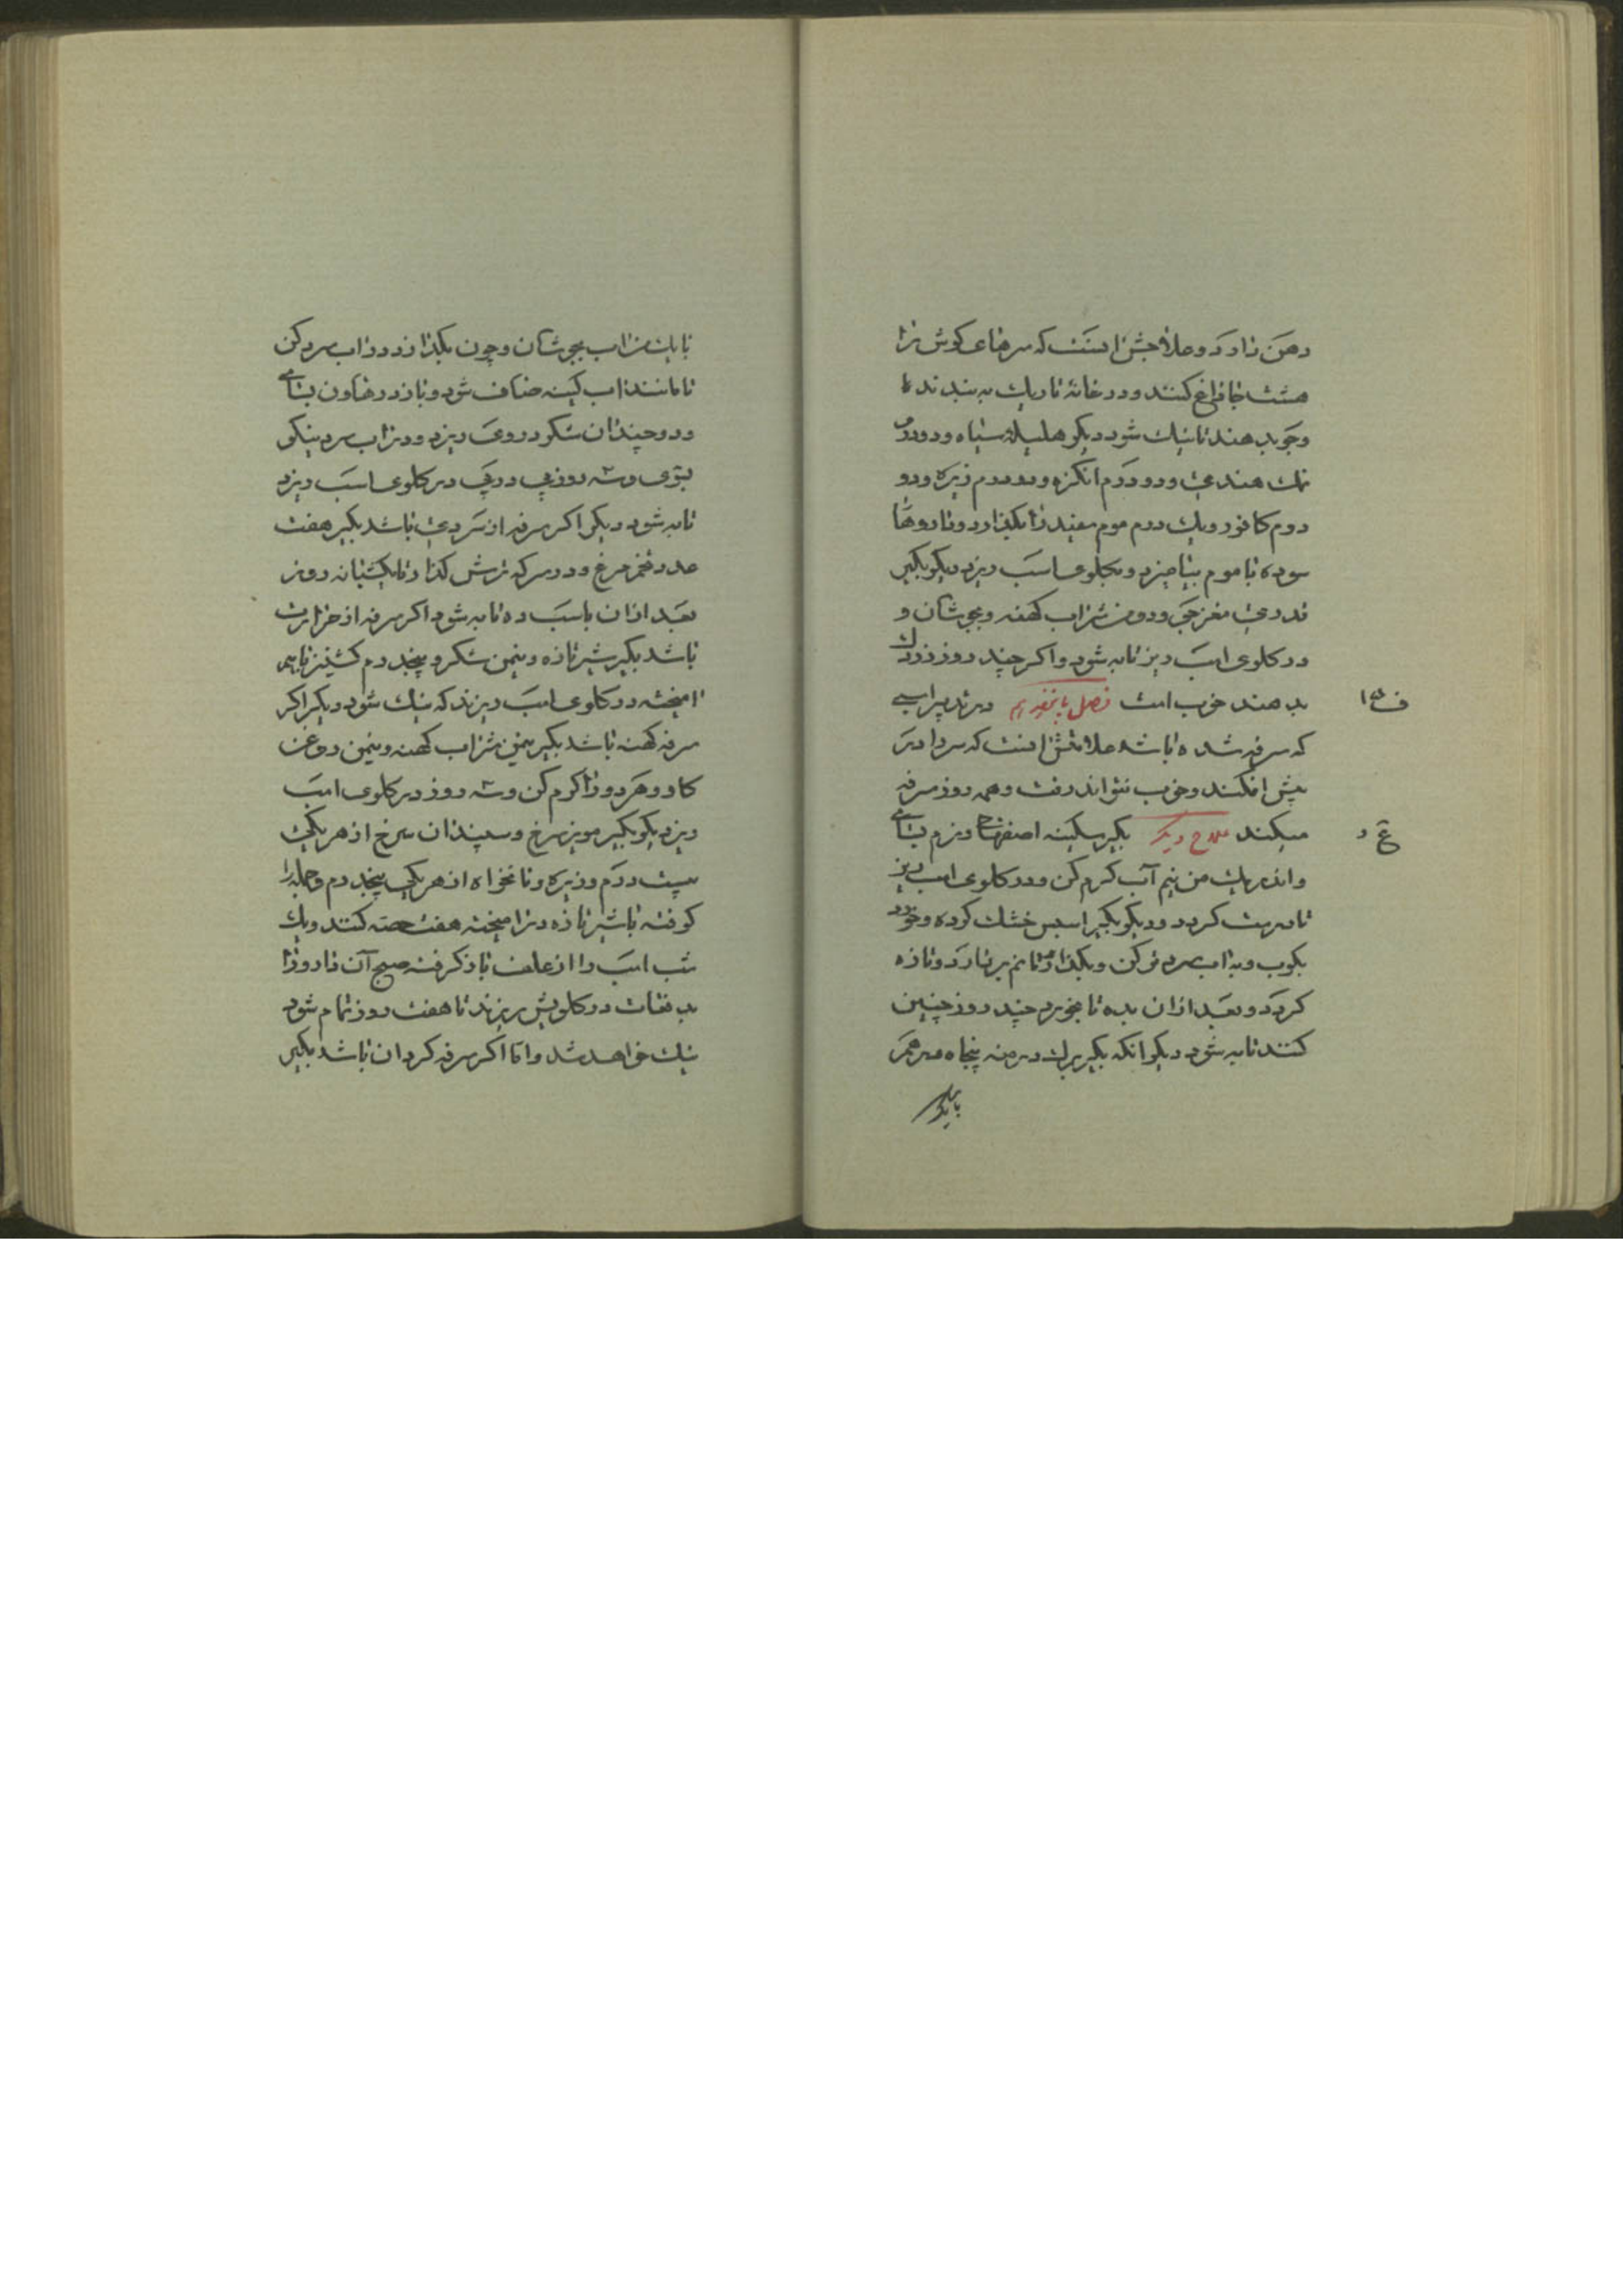 دهن دارد و علاجش انست که سرهای کوش را
هشت جا داغ کنند و در خانهٔ تاریک به بندند تا
وجو بدهند تا نیک شود دیکر هلیلهٔ سیاه و دو درم
نمک هندی و دو درم انکزه و دو درم زیره و دو
درم کافور و یک درم موم سفید را بکدازد و داروها
سوده با موم بیامیزد و بکلوی اسب ریزد دیکر بکیر
قدری مغز و دو من شراب کهنه و بجوشان و
در کلوی اسب ریز تا به شود و اکر چند روز زردک
بدهند خوب است فصل پانزدهم در تدبیر اسبی
که سرفه شده باشد علامتش انست که سر را در
پیش افکند و خوب نتواند رفت و همه روز سرفه
میکند علاج دیکر بکیر سکبینه اصفهانی و نرم بسای
و اندر یک من نیم آب کرم کن و در کلوی اسب ریز
تا درست کردد و دیکر بکیر خشک کرده و خورد
بکوب و به اب سرد تر کن و بکذار تا نم بردارد و تازه
کردد و بعد ازان بده تا بخورد چند روز چنین
کنند تا به شود دیکر انکه بکیر برک درمنه پنجاه درهم
با یک
با یک من اب بجوشان و چون بکدازد در اب سرد کن
تا مانند اب کینه صاف شود و باز در هاون بسای
و دو چندان شکر در وی ریزد و در اب سرد نیکو
و سه روز پی در پی در کلوی اسب ریزد
تا به شود دیکر اکر سرفه از سردی باشد بکیر هفت
عدد تخم مرغ و در سرکه ترش کذار تا یکشبانه روز
بعد ازان باسب ده تا به شود اکر سرفه از حرارت
باشد بکیر شیر تازه و نیمن شکر و پنجدرم کشنیز باهم
امیخته در کلوی اسب ریزند که نیک شود دیکر اکر
سرفه کهنه باشد بکیر نیمن شراب کهنه و نیمن روغن
کاو و هر دو را کرم کن و سه روز در کلوی اسب
ریزد دیکر بکیر مویز سرخ و سپندان سرخ از هر یکی
بیست درم و زیره و نانخواه از هر یکی پنجدرم و جمله را
کوفته با شیر تازه در امیخته هفت حصه کنند و یک
شب اسب را از علف باز کرفته صبح آن دارو را
بدفعات در کلویش ریزند تا هفت روز تمام شود
نیک خواهد شد و اما اکر سرفه کردان باشد بکیر